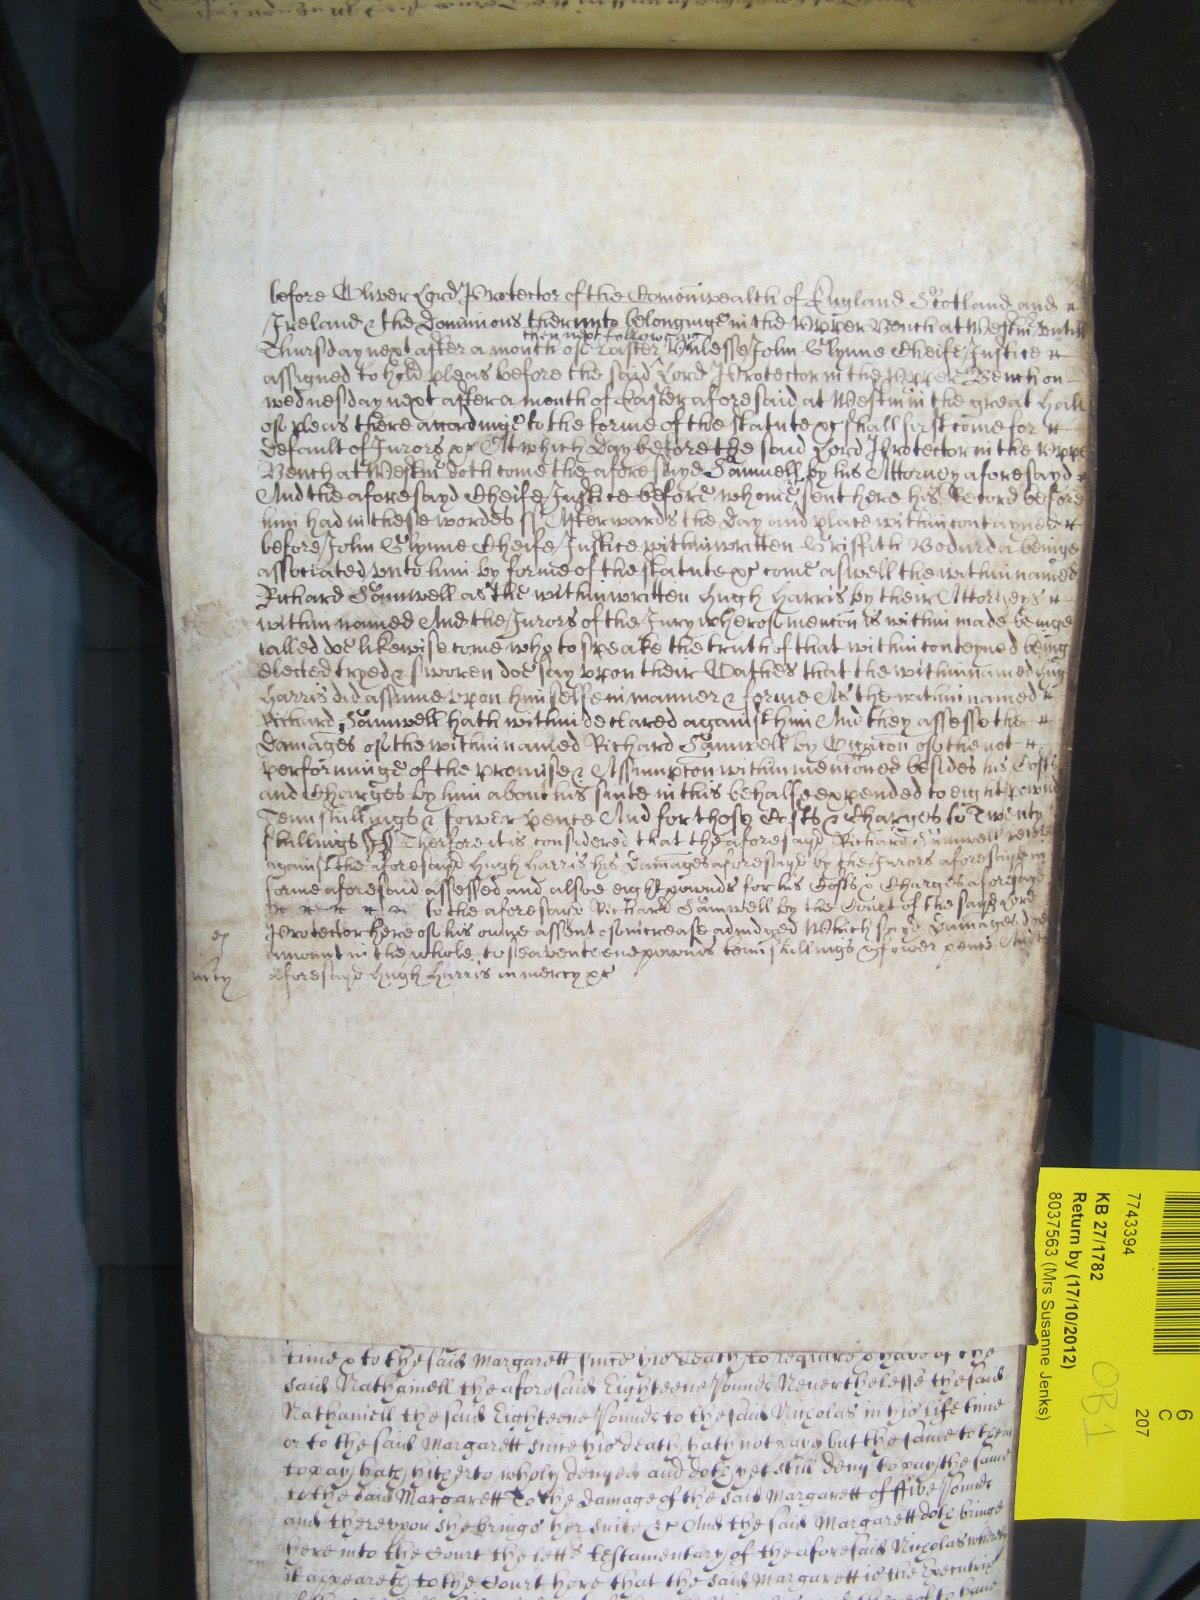 before Oliver Lord Protector of the Comonwealth of England Scotland and
Ireland & the Dominions therunto belonginge in the Upper Bench at Westmr untill
then next followeing
Thursday next after a month of Easter Unlesse John Glynne Cheife Justice
assigned to hold pleas before the said Lord Protector in the Upper Bench on
wednesday next after a month of Easter aforesaid at Westm in the great hall
of pleas there accordinge to the forme of the statute &c shall first come for
default of Jurors &c At which day before the said Lord Protector in the Uppe
Bench at Westmr doth come the aforesayd Samwell by his Attorney aforesayd
And the aforesayd Cheife Justice before whome sent here his Record before
him had in these wordes ss Afterwards the day and place within contayned
before John Glynne Cheife Justice within written Griffith Bodurda beinge
associated unto him by forme of the statute &c come aswell the within named
Richard Samwell as the within written Hugh Harris by their Attorneys
within named And the Jurors of the Jury wherof mencon is within made beinge
called doe likewise come who to speake the truth of that within conteyned being
elected tryed & sworen doe say upon their Oathes that the within named Hug
Harris did assume upon himselfe in manner & forme As the within named
Richard Samwell hath within declared against him And they assesse the
damages of the within named Richard Samwell by Occacon of the not
performinge of the promise & Assumpton within mencioned besides his Costs
and Charges by him about his suite in this behalfe expended to eight pownd
Tenn shillings & fower pence And for those Costs & Charges to Twenty
shillings Therfore it is considered that the aforesayd Richard Samwell recov
against the aforesayd Hugh Harris his damages aforesayd by the Jurors aforesayd in
forme aforesaid assessed and alsoe eight pownds for his Costs & Charges aforesayd
to the aforesayd Richard Samwell by the Court of the sayd Lord
Protector here of his owne assent of increase adiudged Which sayd damages doe
amount in the whole to seaventeene pownds tenn shillings & fower pence And t
aforesayd Hugh Harris in mercy &c
mcy
time & to the said Margarett since his death to require & have of the
said Nathaniell the aforesaid Eighteene Pounds Neverthelesse the said
Nathaniell the said Eighteene Pounds to the said Nicholas in his life time
or to the said Margarett since his death hath not payd but the same to them
to pay hath hitherto wholy denyed and doth yet still deny to pay the same
to the said Margarett To the damage of the said Margarett of ffive Pounds
and thereupon she brings her suite &c And the said Margarett doth bringe
here into the Court the letts testamentary of the aforesaid Nicholas whereby
it appeareth to the Court here that the said Margarett is the Executrix
6
C
207
7743394
KB 27/1782
Return by (17/10/2012)
8037563 (Mrs Susanne Jenks)
OB 1